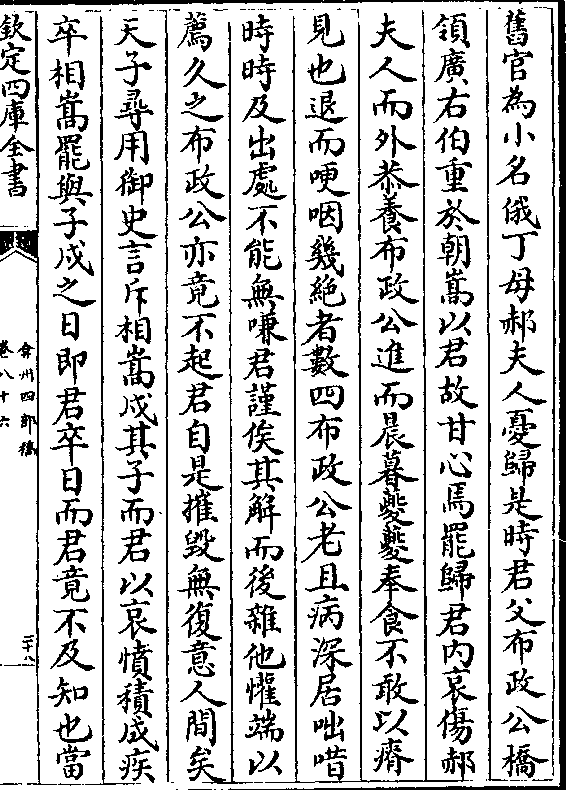 舊官為小名俄丁母郝夫人憂歸是時君父布政公橋
領廣右伯重於朝嵩以君故甘心焉罷歸君內哀傷郝
夫人而外恭養布政公進而晨暮夔夔奉食不敢以瘠
見也退而哽咽幾絕者數四布政公老且病深居咄唶
時時及出處不能無嗛君謹俟其解而後雜他懽端以
薦久之布政公亦竟不起君自是摧毀無復意人間矣
天子尋用御史言斥相嵩戍其子而君以哀憤積成疾
卒相嵩罷與子戍之日即君卒日而君竟不及知也當
欽定四庫全書
弇州四部稿
卷八十六
二十八